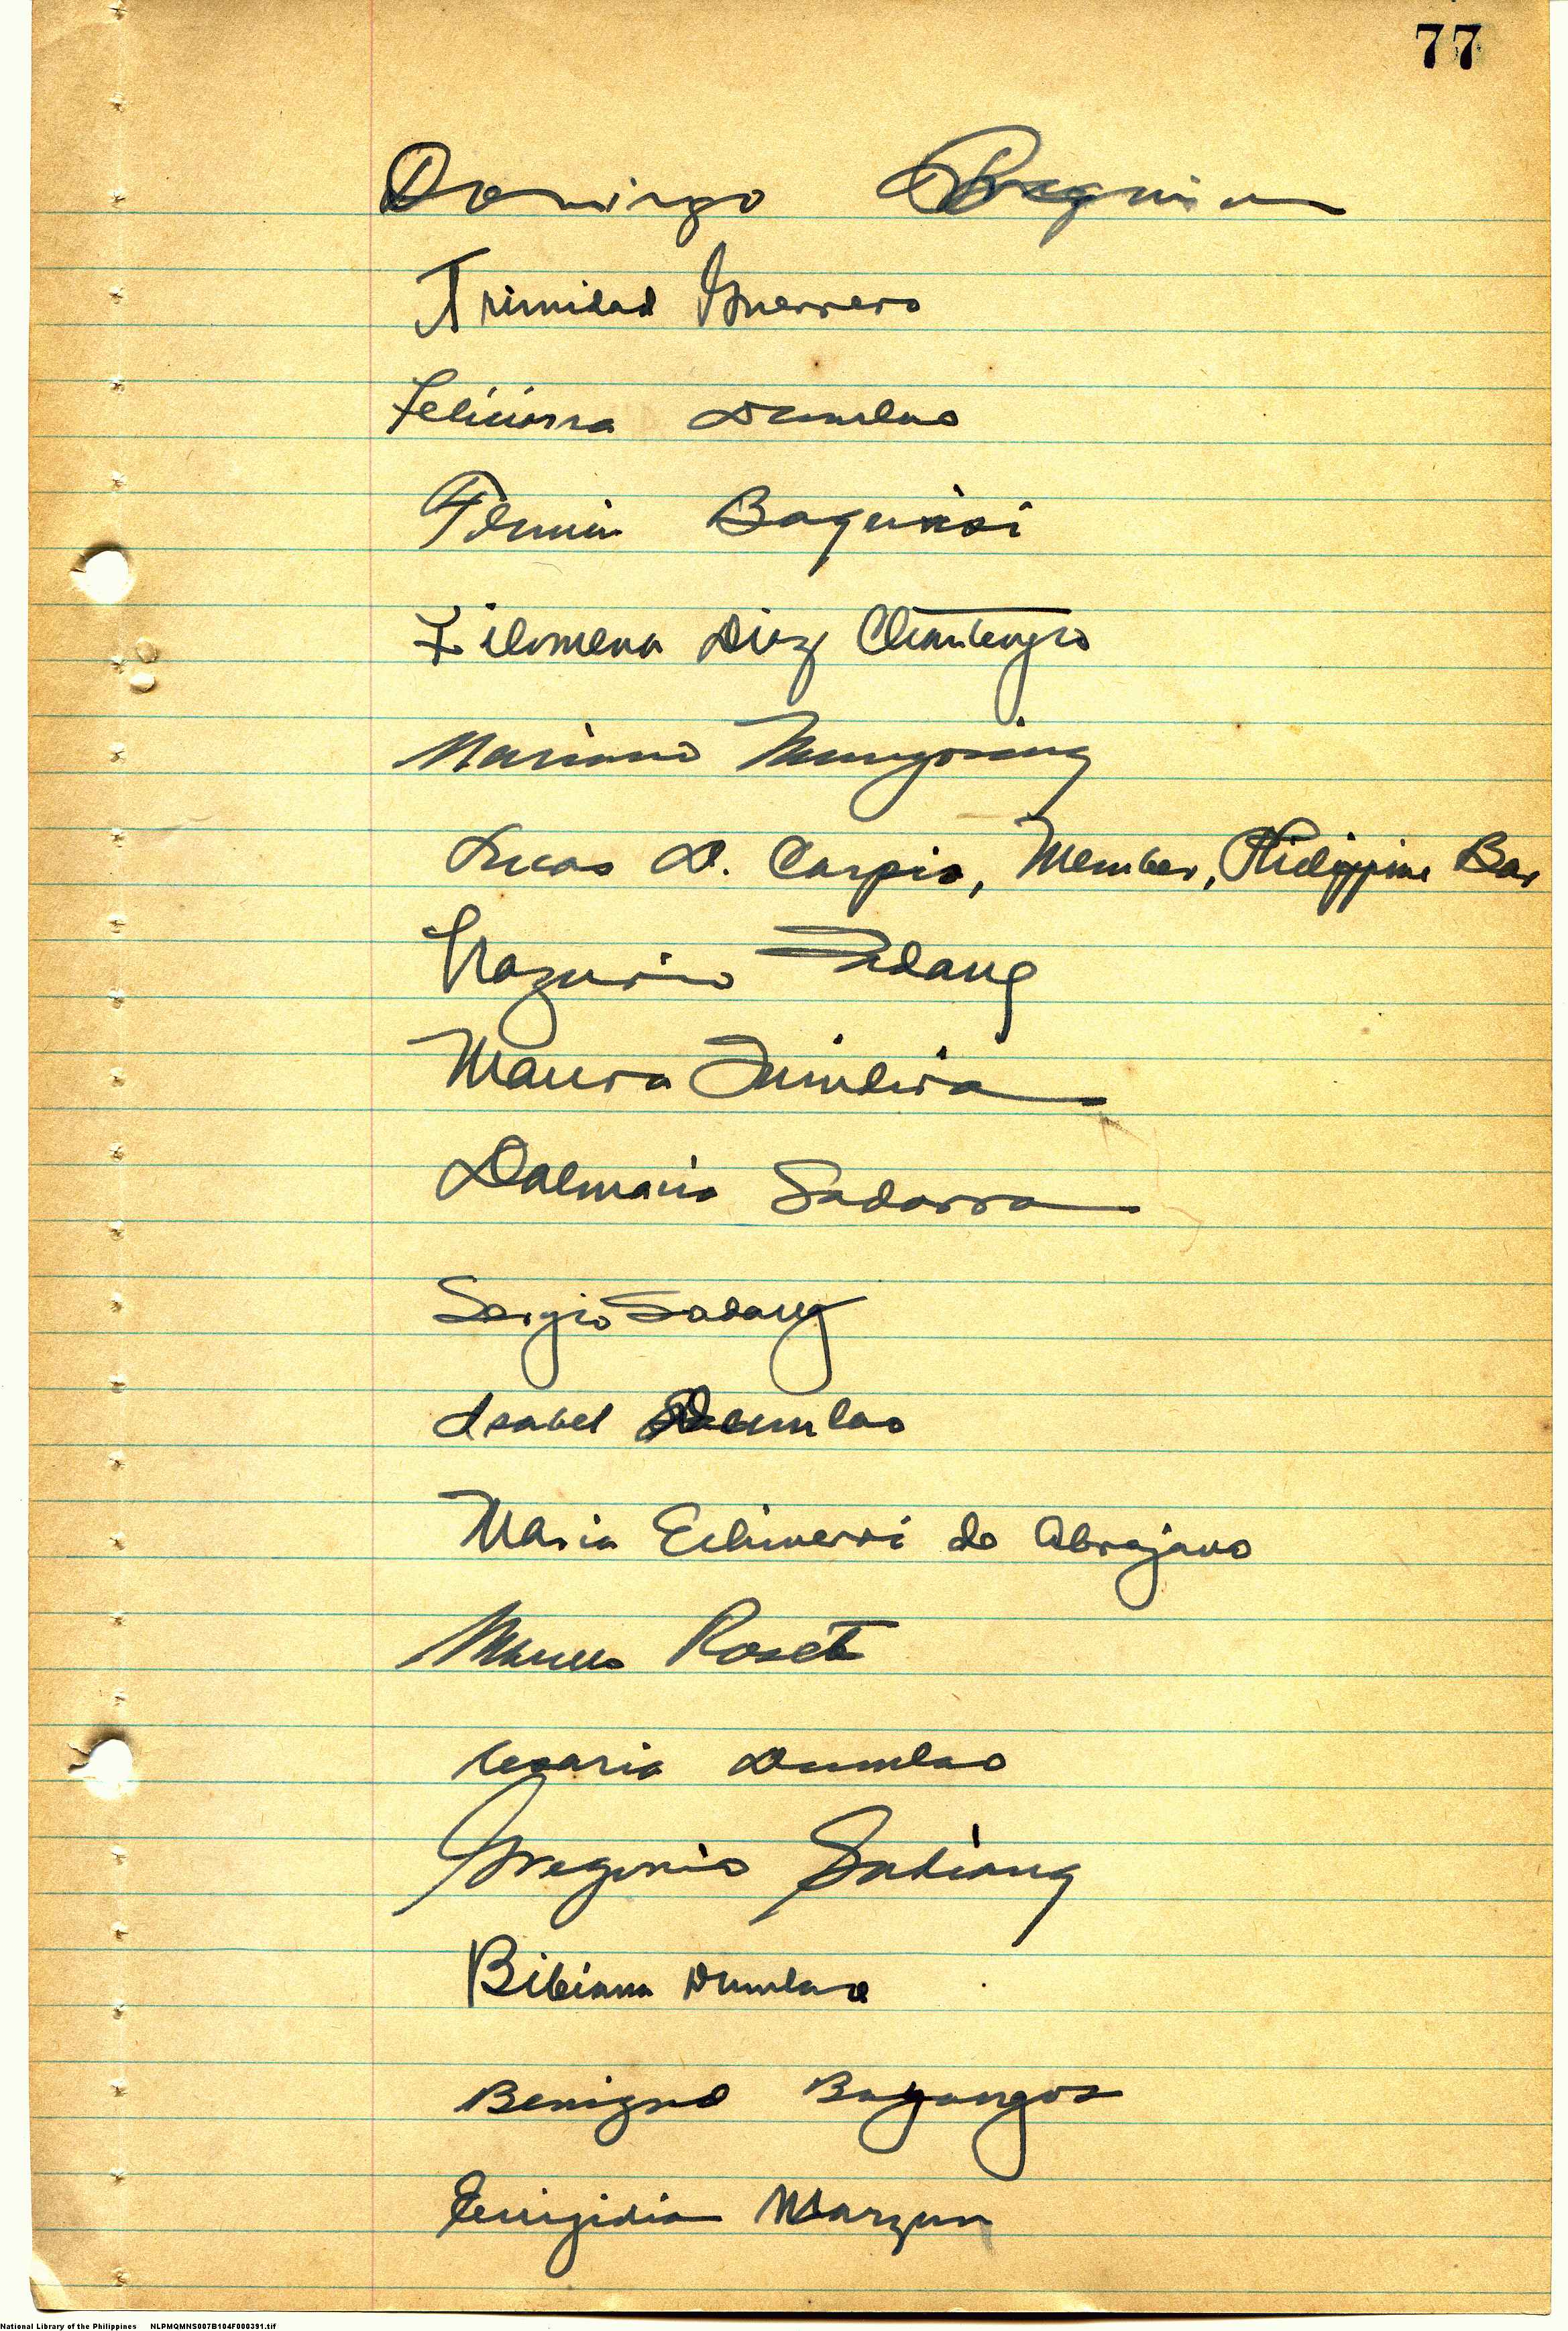 77
Domingo
Trinidad Guerrero
Feliciana Dumlao
Fermin Baguisi
Filomena Diaz Chantengco
Mariano
Lucas D. Carpio, Member, Philippine Bar
Nazario Sadang
Maura
Dalmacio Sadorra
Sergio Sadang
Isabel Dumlao
Maria Echiverri de Abrajano
Marcelo Rosete
Cesaria Dumlao
Gregorio Sadiang
Bibiana Dumlao
Benigno Bayangos
Marzan
National Library of the Philippines NLPMQMNS007B104F000391.tif